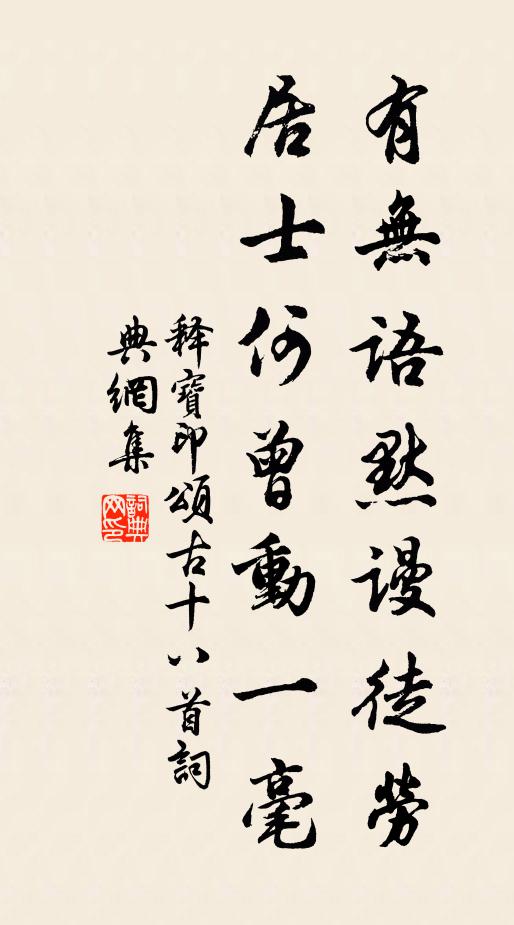 有無語默謾徒勞
居士何曾動一毫
释寶印頌古十八首詞
典網集
詞典網印